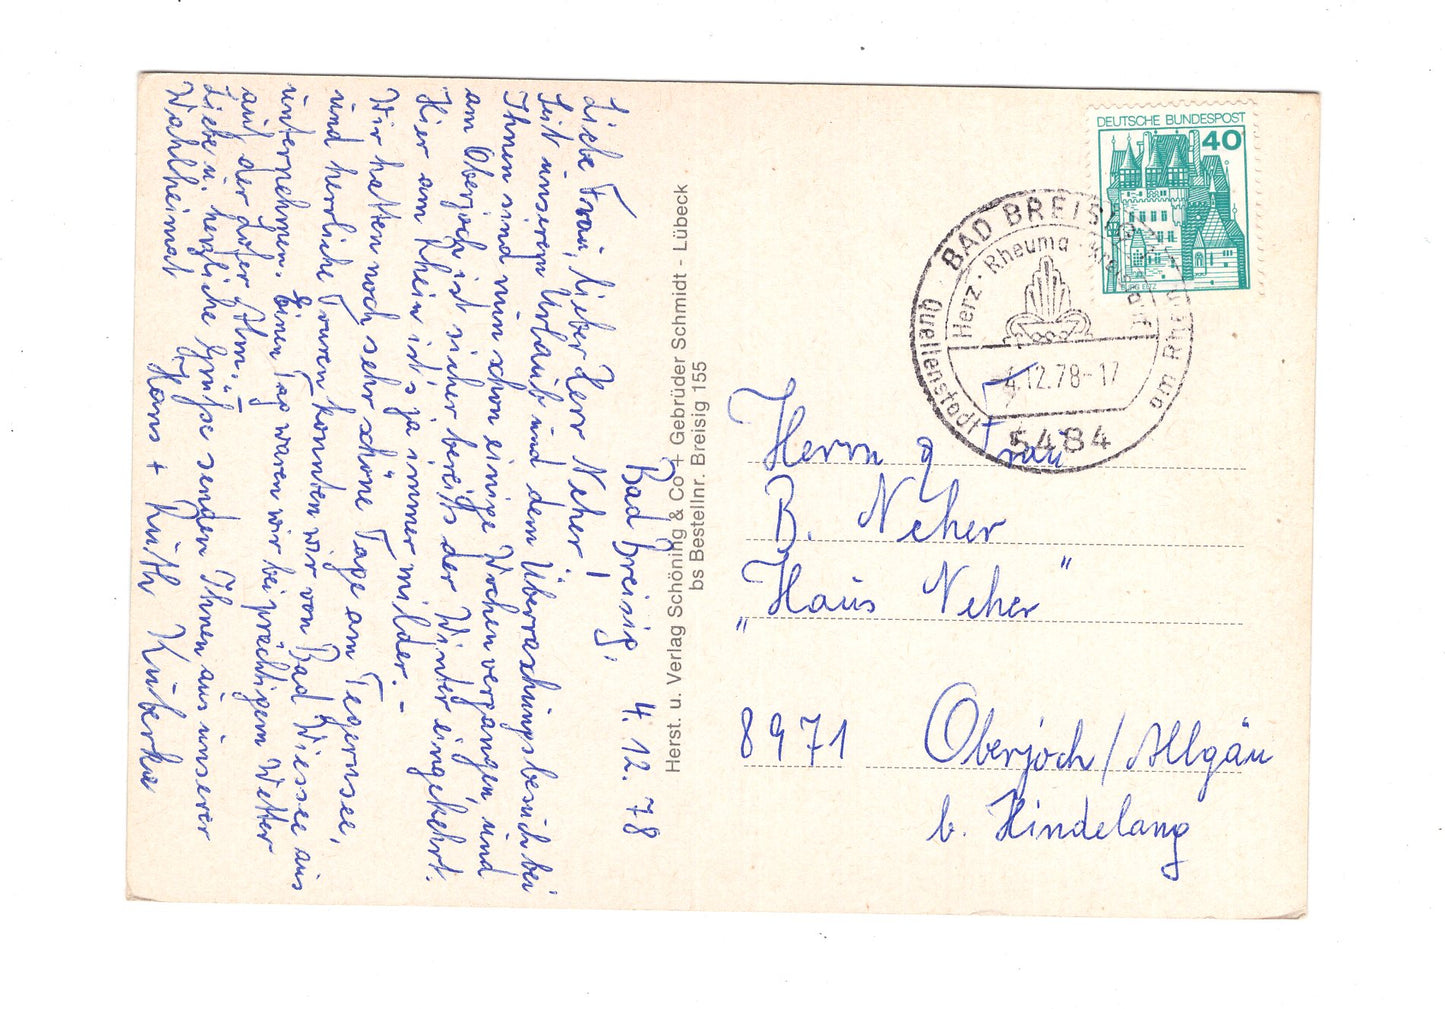 Bad Breisig, 4.12.78
Liebe Frau, lieber Herr Neher!
Seit unserem Urlaub und dem Überraschungsbesuch bei
Ihnen sind nun schon einige Wochen vergangen und
am Oberjoch ist sicher bereits der Winter eingekehrt.
Hier am Rhein ist's ja immer milder. –
Wir hatten noch sehr schöne Tage am Tegernsee,
und herrliche Touren konnten wir von Bad Wiessee aus
unternehmen. Einen Tag waren wir bei prächtigem Wetter
auf der Lofer Alm. –
Liebe u. herzliche Grüße senden Ihnen aus unserer
Wahlheimat
Hans + Ruth
Herst. u. Verlag Schöning & Co + Gebrüder Schmidt - Lübeck
bs Bestellnr. Breisig 155
DEUTSCHE BUNDESPOST
40
BURG ELTZ
BAD BREISIG
am Rhein
Quellenstadt
Herz · Rheuma · Kreislauf
4.12.78-17
5484
Herrn & Frau
B. Neher
„Haus Neher"
8971 Oberjoch/Allgäu
b. Hindelang